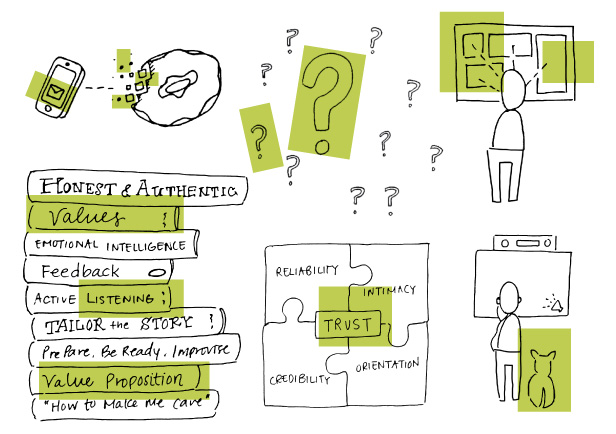 ?
?
?
?
?
?
?
?
?
?
HONEST & AUTHENTIC
Values
EMOTIONAL INTELLIGENCE
Feedback
ACTIVE LISTENING
TAILOR the STORY
PrePare, Be Ready, Improvise
Value Proposition
"How to Make Me Care"
RELIABILITY
INTIMACY
TRUST
CREDIBILITY
ORIENTATION